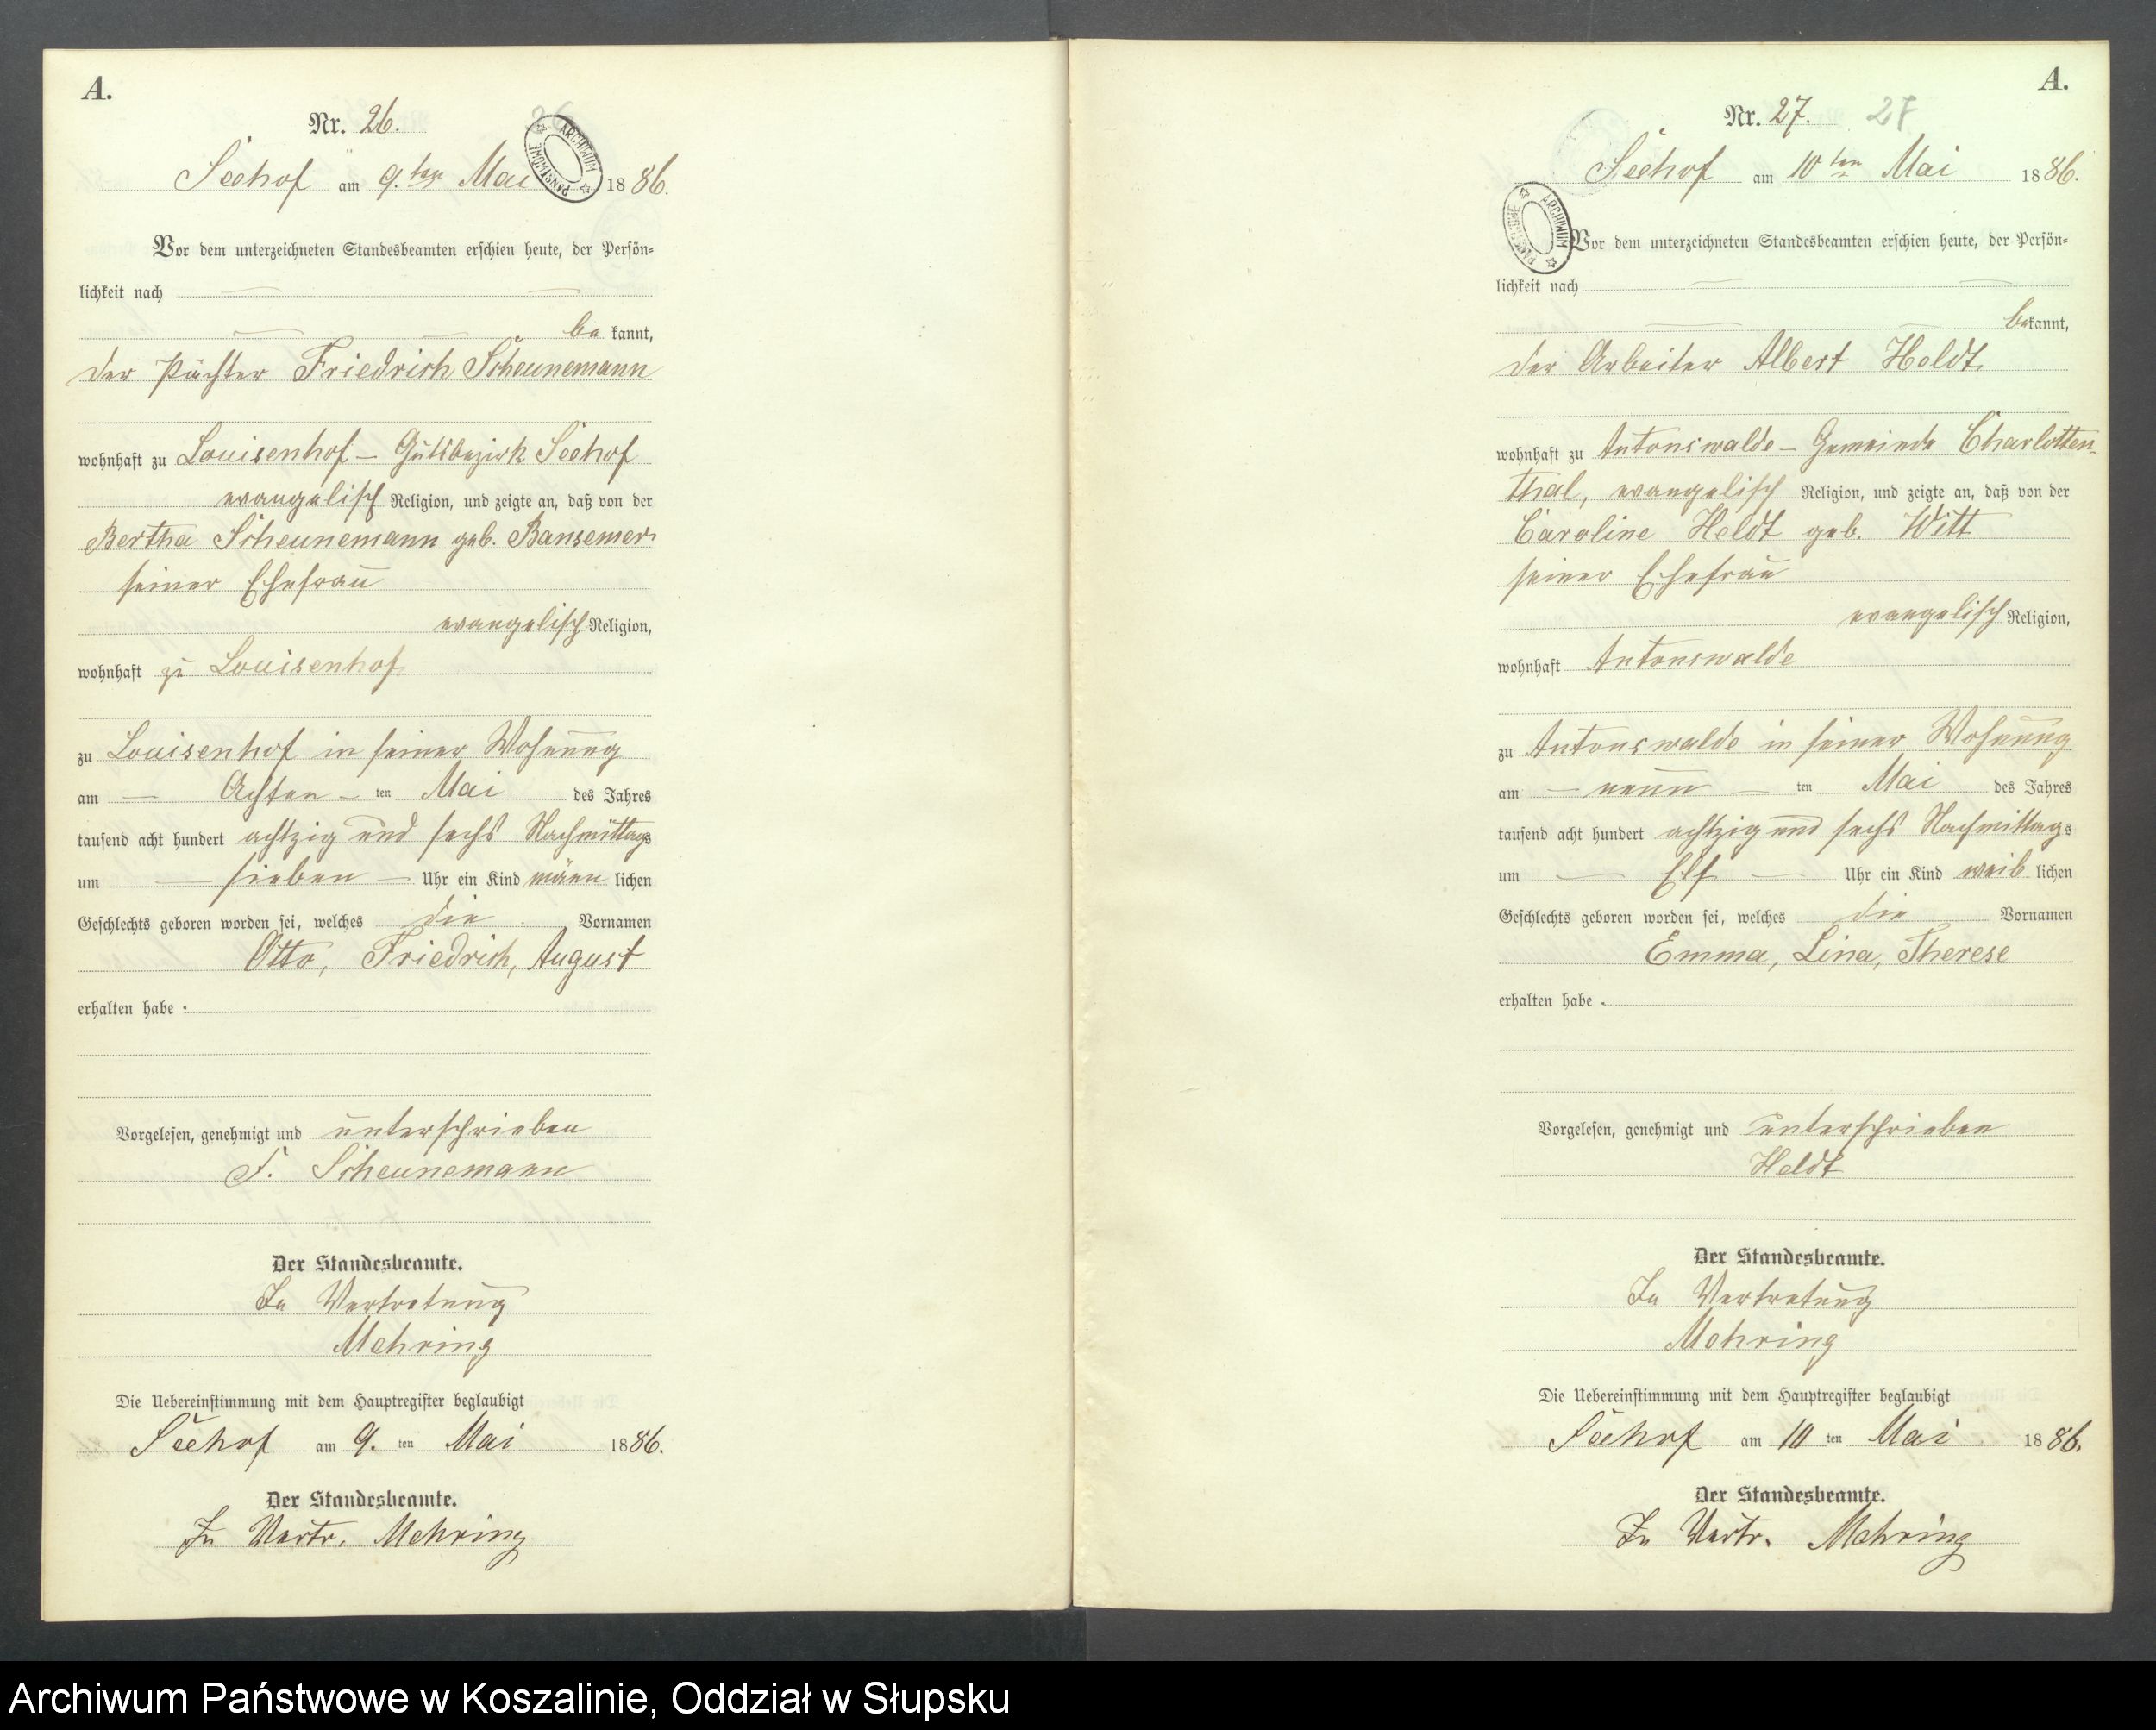 A.
Nr. 26.
26
Seehof am 9. ten Mai 1886.
ARCHIWUM PAŃSTWOWE
Vor dem unterzeichneten Standesbeamten erschien heute, der Persön=
lichkeit nach
be kannt,
der Pächter Friedrich Scheunemann
wohnhaft zu Louisenhof – Gutsbezirk Seehof
evangelisch Religion, und zeigte an, daß von der
Bertha Scheunemann geb. Bansemer
seiner Ehefrau
evangelisch Religion,
wohnhaft zu Louisenhof
zu Louisenhof in seiner Wohnung
am — Achten – ten Mai des Jahres
tausend acht hundert achtzig und sechs Nachmittags
um — sieben — Uhr ein Kind männ lichen
Geschlechts geboren worden sei, welches die Vornamen
Otto, Friedrich, August
erhalten habe .
Vorgelesen, genehmigt und unterschrieben
F. Scheunemann
Der Standesbeamte.
In Vertretung
Mehring
Die Uebereinstimmung mit dem Hauptregister beglaubigt
Seehof am 9. ten Mai 1886.
Der Standesbeamte.
In Vertr. Mehring
A.
Nr. 27. 27
Seehof am 10 ten Mai 1886.
ARCHIWUM PAŃSTWOWE
Vor dem unterzeichneten Standesbeamten erschien heute, der Persön=
lichkeit nach
bekannt,
der Arbeiter Albert Heldt
wohnhaft zu Antonswalde – Gemeinde Charlotten-
thal, evangelisch Religion, und zeigte an, daß von der
Caroline Heldt geb. Witt
seiner Ehefrau
evangelisch Religion,
wohnhaft Antonswalde
zu Antonswalde in seiner Wohnung
am — neun — ten Mai des Jahres
tausend acht hundert achtzig und sechs Nachmittags
um — Elf — Uhr ein Kind weib lichen
Geschlechts geboren worden sei, welches die Vornamen
Emma, Lina, Therese
erhalten habe .
Vorgelesen, genehmigt und unterschrieben
Heldt
Der Standesbeamte.
In Vertretung
Mehring
Die Uebereinstimmung mit dem Hauptregister beglaubigt
Seehof am 10 ten Mai 1886.
Der Standesbeamte.
In Vertr. Mehring
Archiwum Państwowe w Koszalinie, Oddział w Słupsku